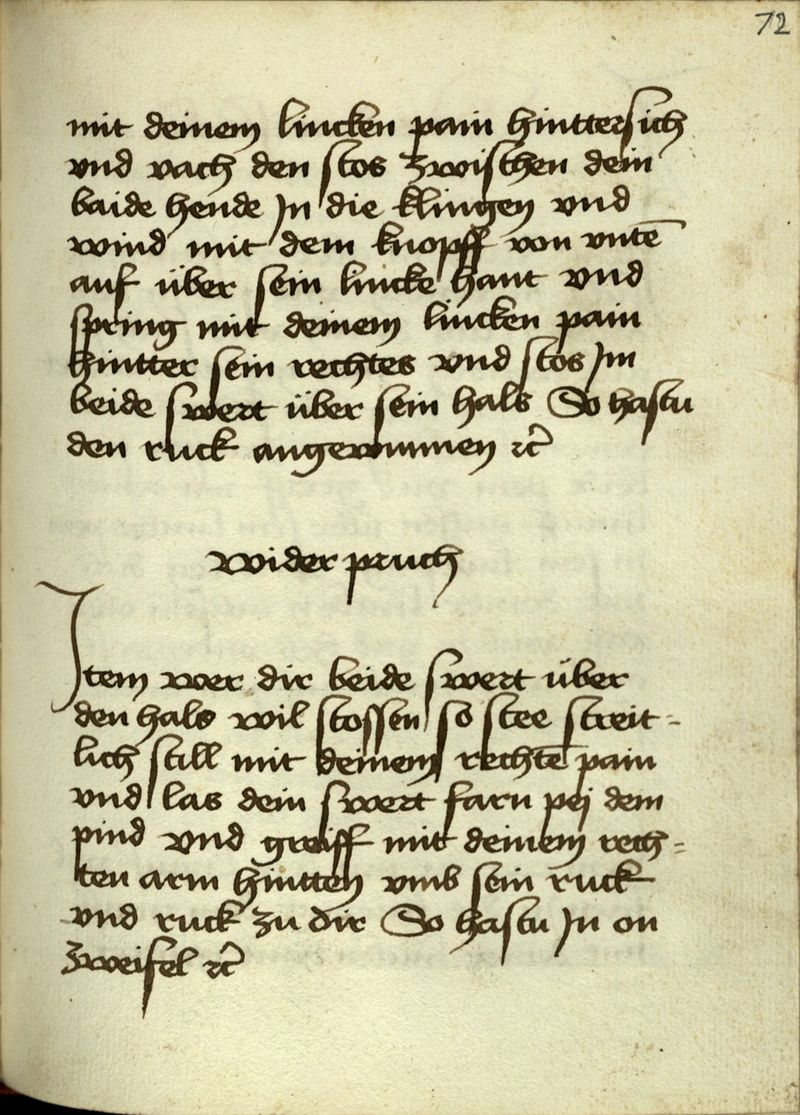 72
mit deinem lincken pain hinttersich
vnd vach den stos zwischen dein
baide hende Jn die klingen vnd
wind mit dem knopff von vntē
auf über sein lincke hant vnd
spring mit deinem lincken pain
hintter sein rechtes vnd stos Jm
beide swert über sein hals So hastu
den ruck angewunnen ꝛc̃
wider pruch
Jtem wer dir beide swert über
den hals wil stossen so stee streit-
lich still mit deinem rechtē pain
vnd las dein swert farn pej dem
pind vnd greiff mit deinem rech=
ten arm hintten vmb sein ruck
vnd ruck zu dir So hastu Jn on
zweifel ꝛc̃